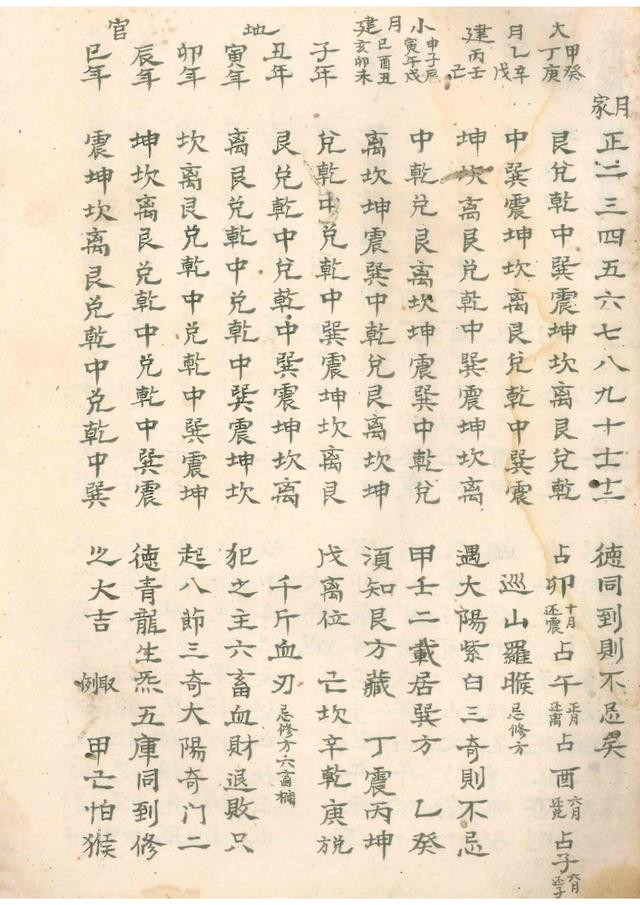 月家 正二三四五六七八九十十一十二 德同到則不忌矣
大 甲癸丁庚 艮兌乾中巽震坤坎离艮兌乾 占卯十月还震占午正月还离占酉六月还兌占子六月还子
月 乙辛戊 中巽震坤坎离艮兌乾中巽震 巡山羅睺忌修方
建 丙壬亡 坤坎离艮兌乾中巽震坤坎离 遇大陽紫白三奇則不忌
小 申子辰寅午戌 中乾兌艮离坎坤震巽中乾兌 甲壬二載居巽方 乙癸
月建 巳酉丑亥卯未 离坎坤震巽中乾兌艮离坎坤 須知艮方藏 丁震丙坤
子年 兌乾中兌乾中巽震坤坎离艮 戊离位 亡坎辛乾庚兌
丑年 艮兌乾中兌乾中巽震坤坎离 千斤血刃忌修方六畜楠
地 寅年 离艮兌乾中兌乾中巽震坤坎 犯之主六畜血財退敗只
卯年 坎离艮兌乾中兌乾中巽震坤 起八節三奇大陽奇門二
辰年 坤坎离艮兌乾中兌乾中巽震 德青龍生炁五庫同到修
官 巳年 震坤坎离艮兌乾中兌乾中巽 之大吉 取例 甲亡怕猴